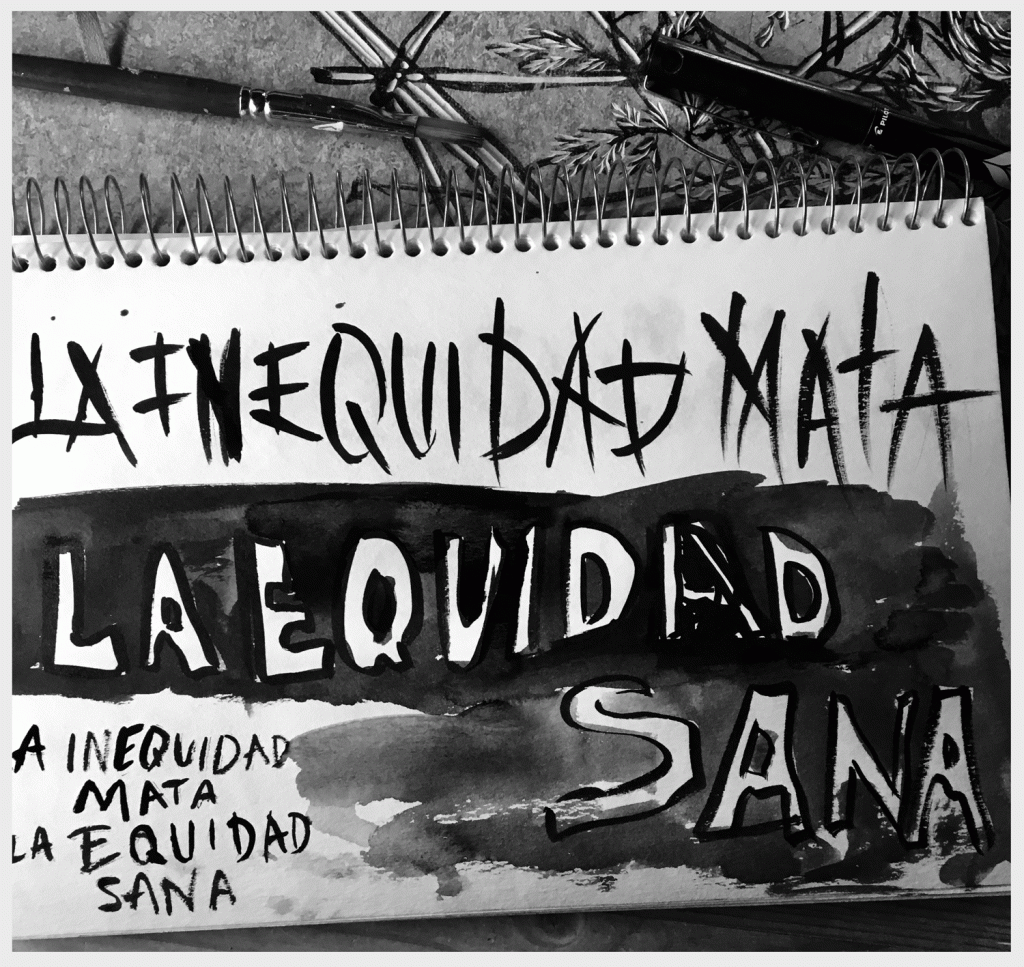 PILO
LA INEQUIDAD MATA
LA EQUIDAD
SANA
A INEQUIDAD
MATA
LA EQUIDAD
SANA